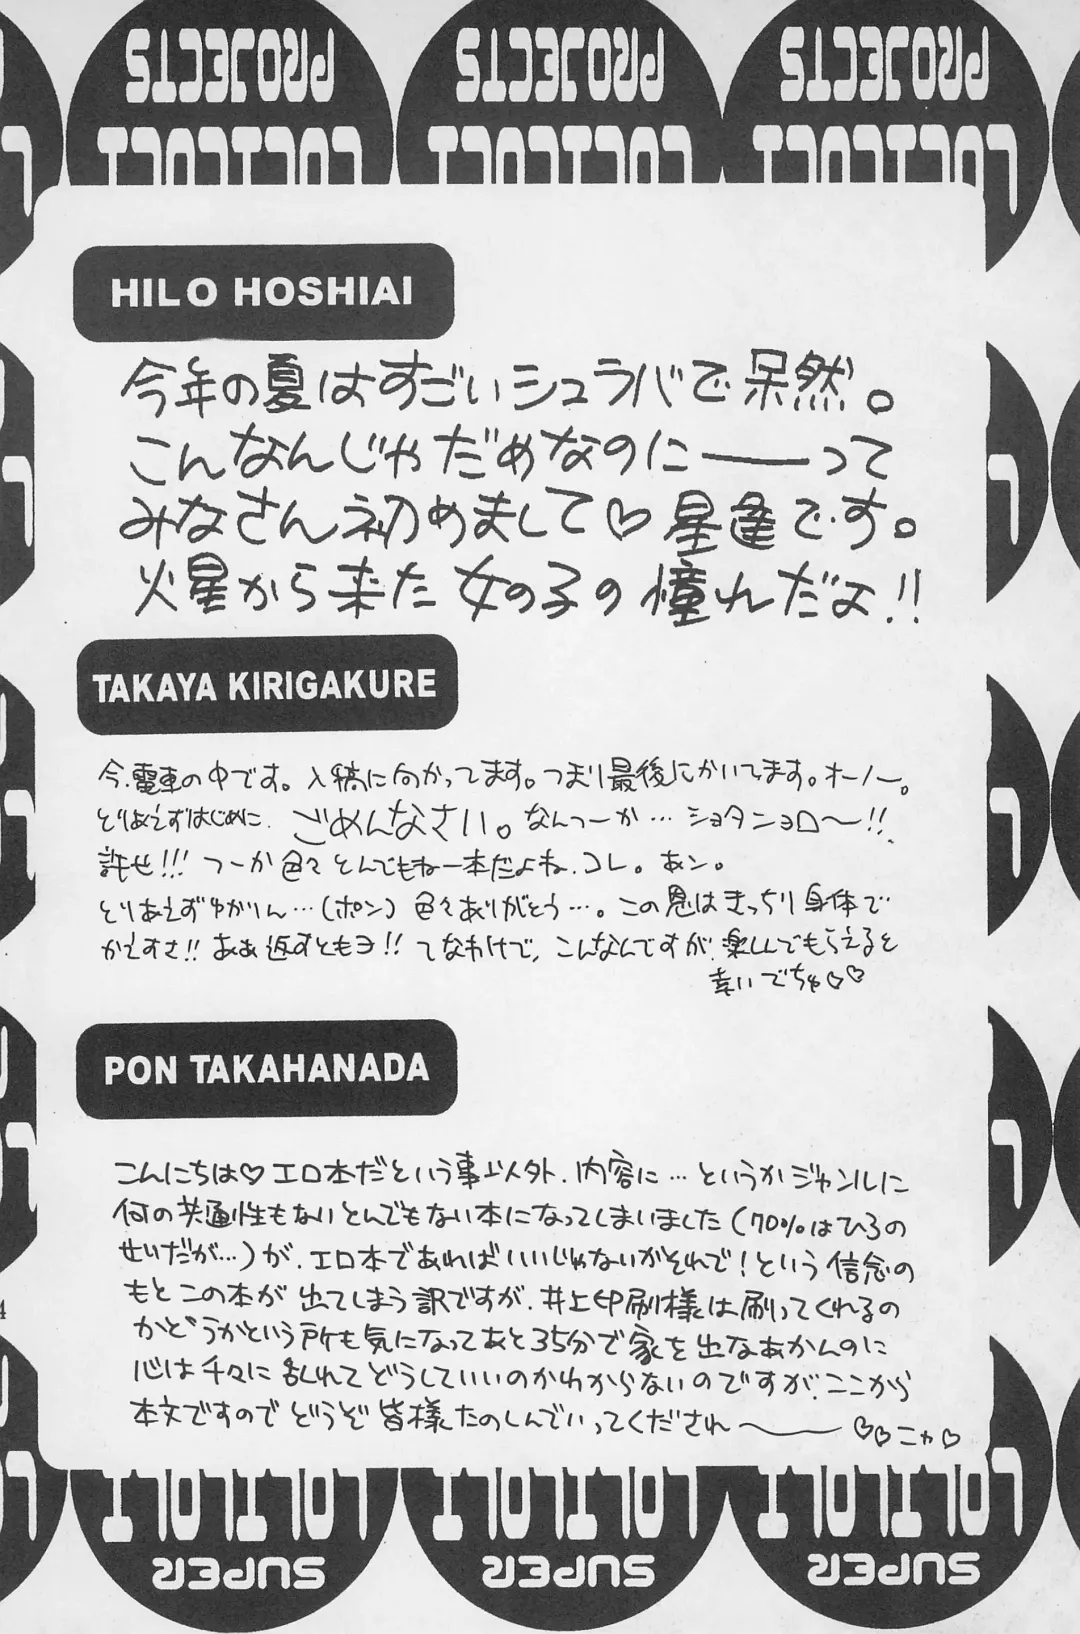 SUPER LOLILOLI PROJECTS
HILO HOSHIAI
今年の夏はすごいシュラバで呆然。
こんなんじゃだめなのに——って
みなさん初めまして♡星逢です。
火星から来た女の子の憧れだよ!!
TAKAYA KIRIGAKURE
今、電車の中です。入稿に向かってます。つまり最後にかいてます。オーノー。
とりあえずはじめに、ごめんなさい。なんつーか…ショタンョロ〜!!
許せ!!! つーか色々とんでもねー本だよね、コレ。あン。
とりあえずゆかりん…(ポン)色々ありがとう…。この恩はきっちり身体で
かえすさ!! ああ返すともヨ!! てなわけで、こんなんですが、楽しんでもらえると
幸いでちゅ♡♡
PON TAKAHANADA
こんにちは♡エロ本だという事以外、内容に…というかジャンルに
何の共通性もないとんでもない本になってしまいました(70%はひろの
せいだが…)が、エロ本であればいいじゃないがそれで!という信念の
もとこの本が出てしまう訳ですが、井上印刷様は刷ってくれるの
かどうかという所も気になってあと35分で家を出なあかんのに
心は千々に乱れてどうしていいのかわからないのですが、ここから
本文ですのでどうぞ皆様たのしんでいってくだされ〜♡♡ニャ♡
4